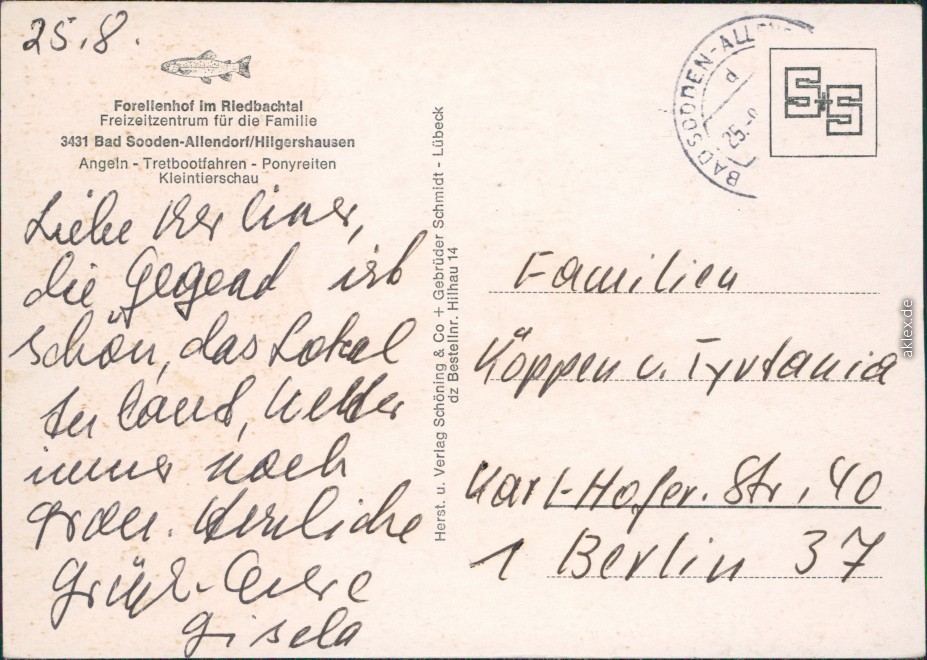 25.8.
Forellenhof im Riedbachtal
Freizeitzentrum für die Familie
3431 Bad Sooden-Allendorf/Hilgershausen
Angeln - Tretbootfahren - Ponyreiten
Kleintierschau
Liebe Berliner,
die Gegend ist
schön, das Lokal
Wetter
immer noch
grau. Herzliche
Grüße - Eure
Gisela
Herst. u. Verlag Schöning & Co + Gebrüder Schmidt - Lübeck
dz Bestellnr. Hilhau 14
BAD SOODEN-ALLEN
d
25.-8
S+S
Familien
Köppen u. Tyrtania
Karl-Hofer-Str. 40
1 Berlin 37
aklex.de